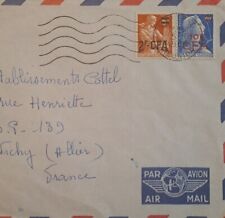 2F CFA
CFA
Etablissements Cottel
rue Henriette
B.P. - 139
Vichy (Allier)
France
PAR AVION
AIR MAIL